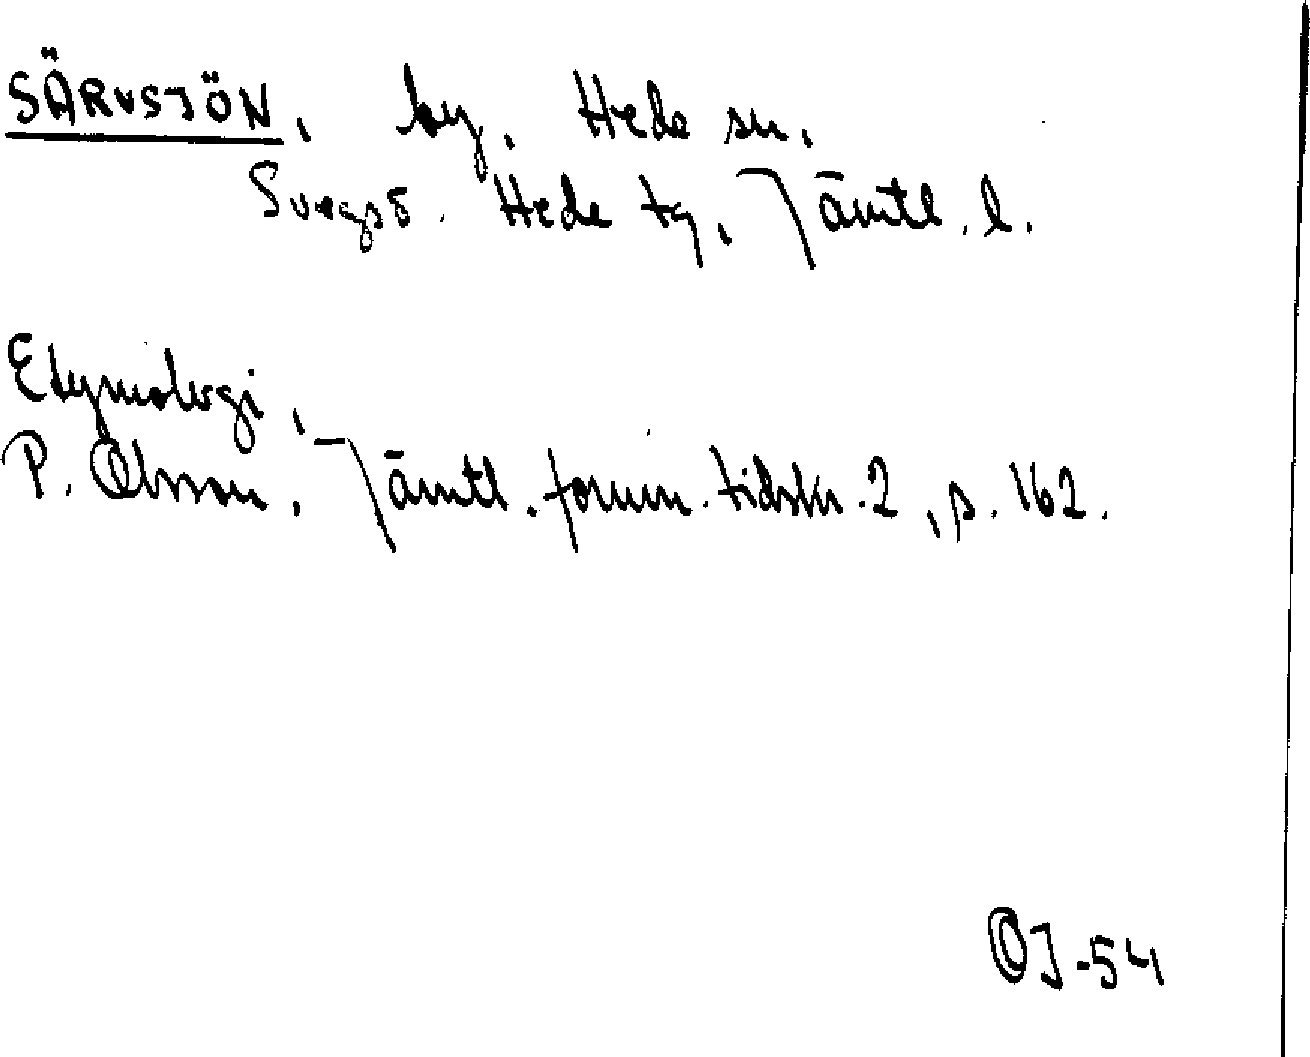 SÄRVSJÖN, by, Hede sn,
Svegs Hede tg, Jämtl. l.
Etymologi,
P. Olsson, Jämtl. fornm. tidskr. 2, s. 162.
OJ-54